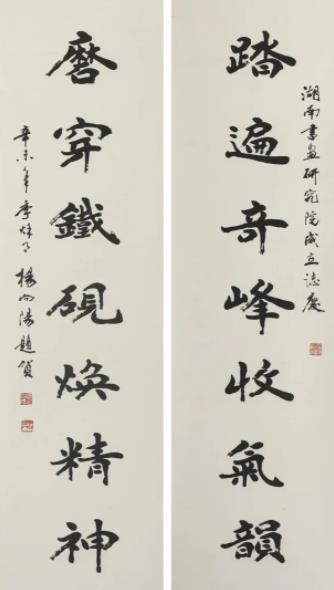 湖南書畫研究院成立誌慶
踏遍奇峰收氣韻
磨穿鐵硯煥精神
辛未年季秋月楊向陽題賀